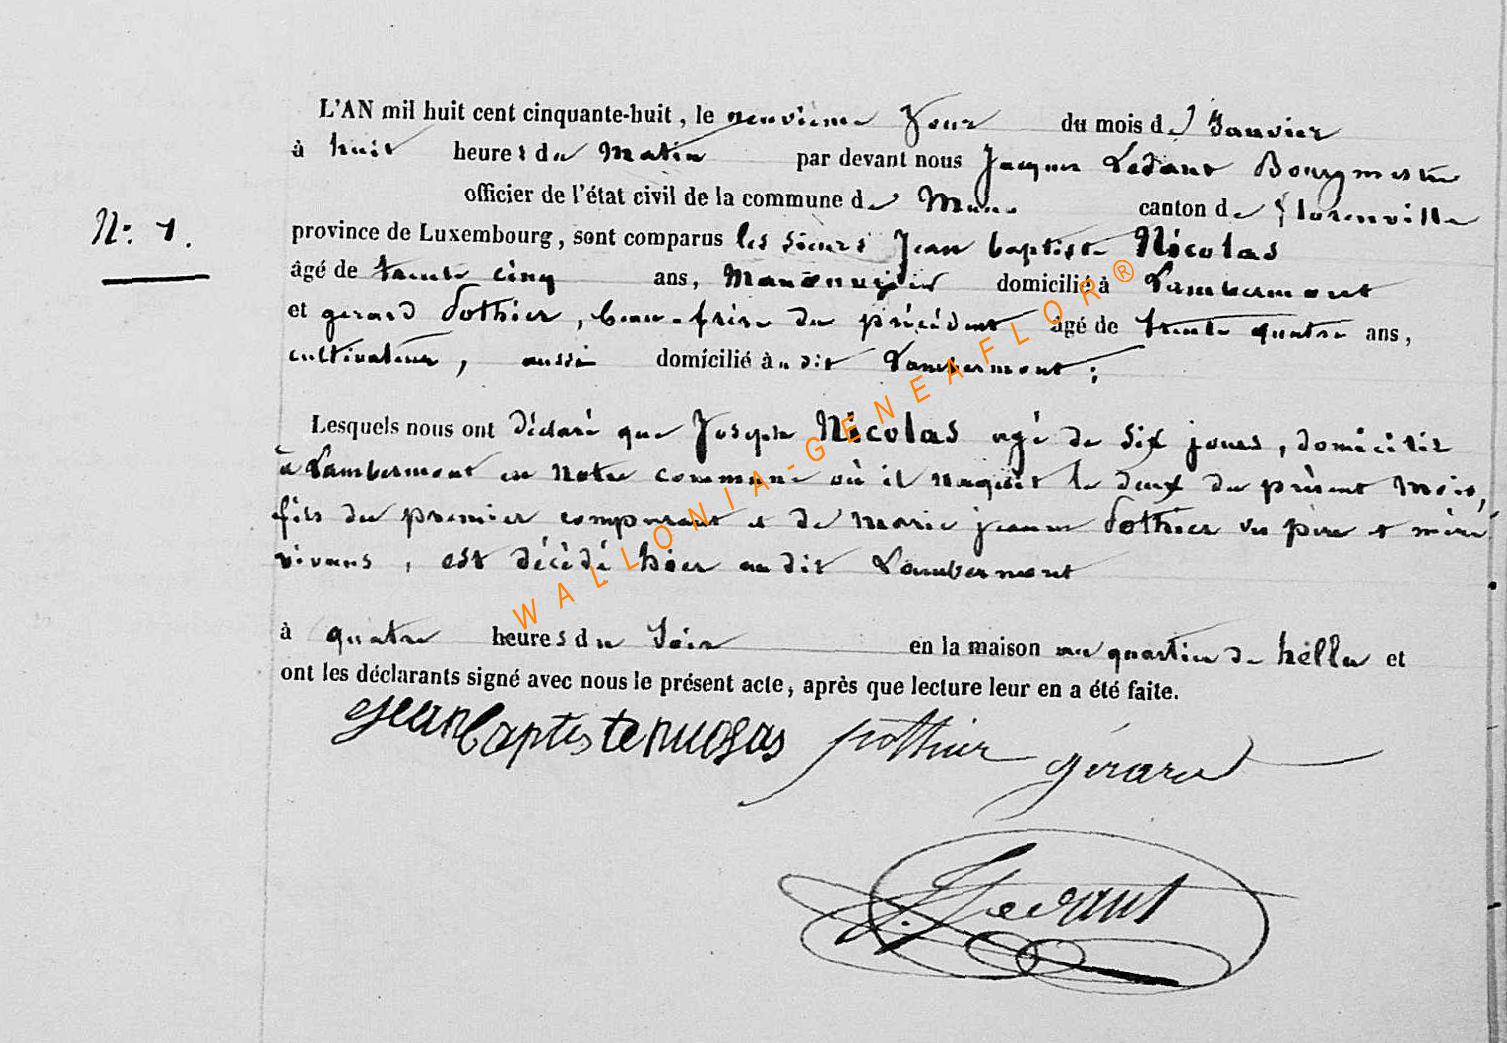 L'AN mil huit cent cinquante-huit, le neuvième jour du mois de Janvier
à huit heures du matin par devant nous Jacques Ledant Bourgmestre
officier de l'état civil de la commune de canton de florenville
N: 1.
province de Luxembourg, sont comparus les sieurs Jean baptiste Nicolas
âgé de trente cinq ans, domicilié à Lambermont
et gerard Pothier, beau-frère du précédent âgé de trente quatre ans,
cultivateur, aussi domicilié au dit Lambermont;
Lesquels nous ont déclaré que Joseph Nicolas agé de six jours, domicilié
à Lambermont en notre commune où il naquit le deux du présent mois,
fils du premier comparant et de Marie jeanne Pothier ses père et mère
vivans, est décédé hier au dit Lambermont
à quatre heures du soir en la maison au quartier de hélla et
ont les déclarants signé avec nous le présent acte, après que lecture leur en a été faite.
jean baptiste nicolas pothier gérard
J. Ledant
WALLONIA-GENEAFLOR®